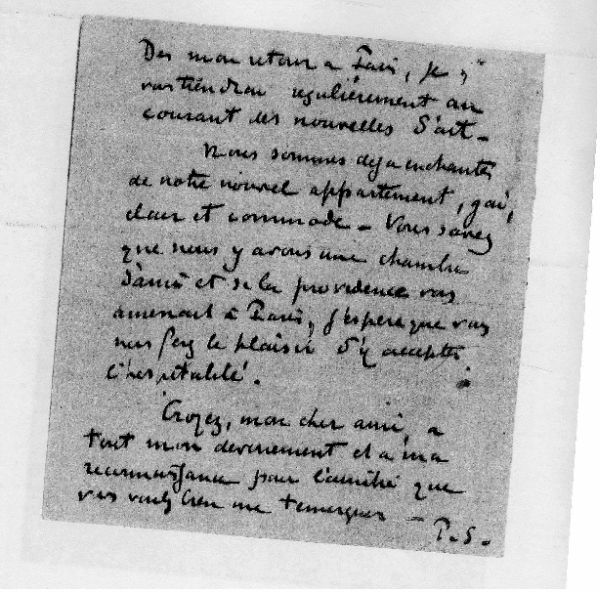 Des mon retour a Paris, je
vous tiendrai regulièrement au
courant des nouvelles d'art -
Nous sommes deja enchantés
de notre nouvel appartement, gai,
clair et commode - Vous savez
que nous y avons une chambre
d'ami et si la providence vous
amenait à Paris, j'espere que vous
nous ferez le plaisir d'y accepter
l'hospitalité.
Croyez, mon cher ami, a
tout mon devouement et a ma
reconnaissance pour l'amitié que
vous voulez bien me temoigner -
P.S.